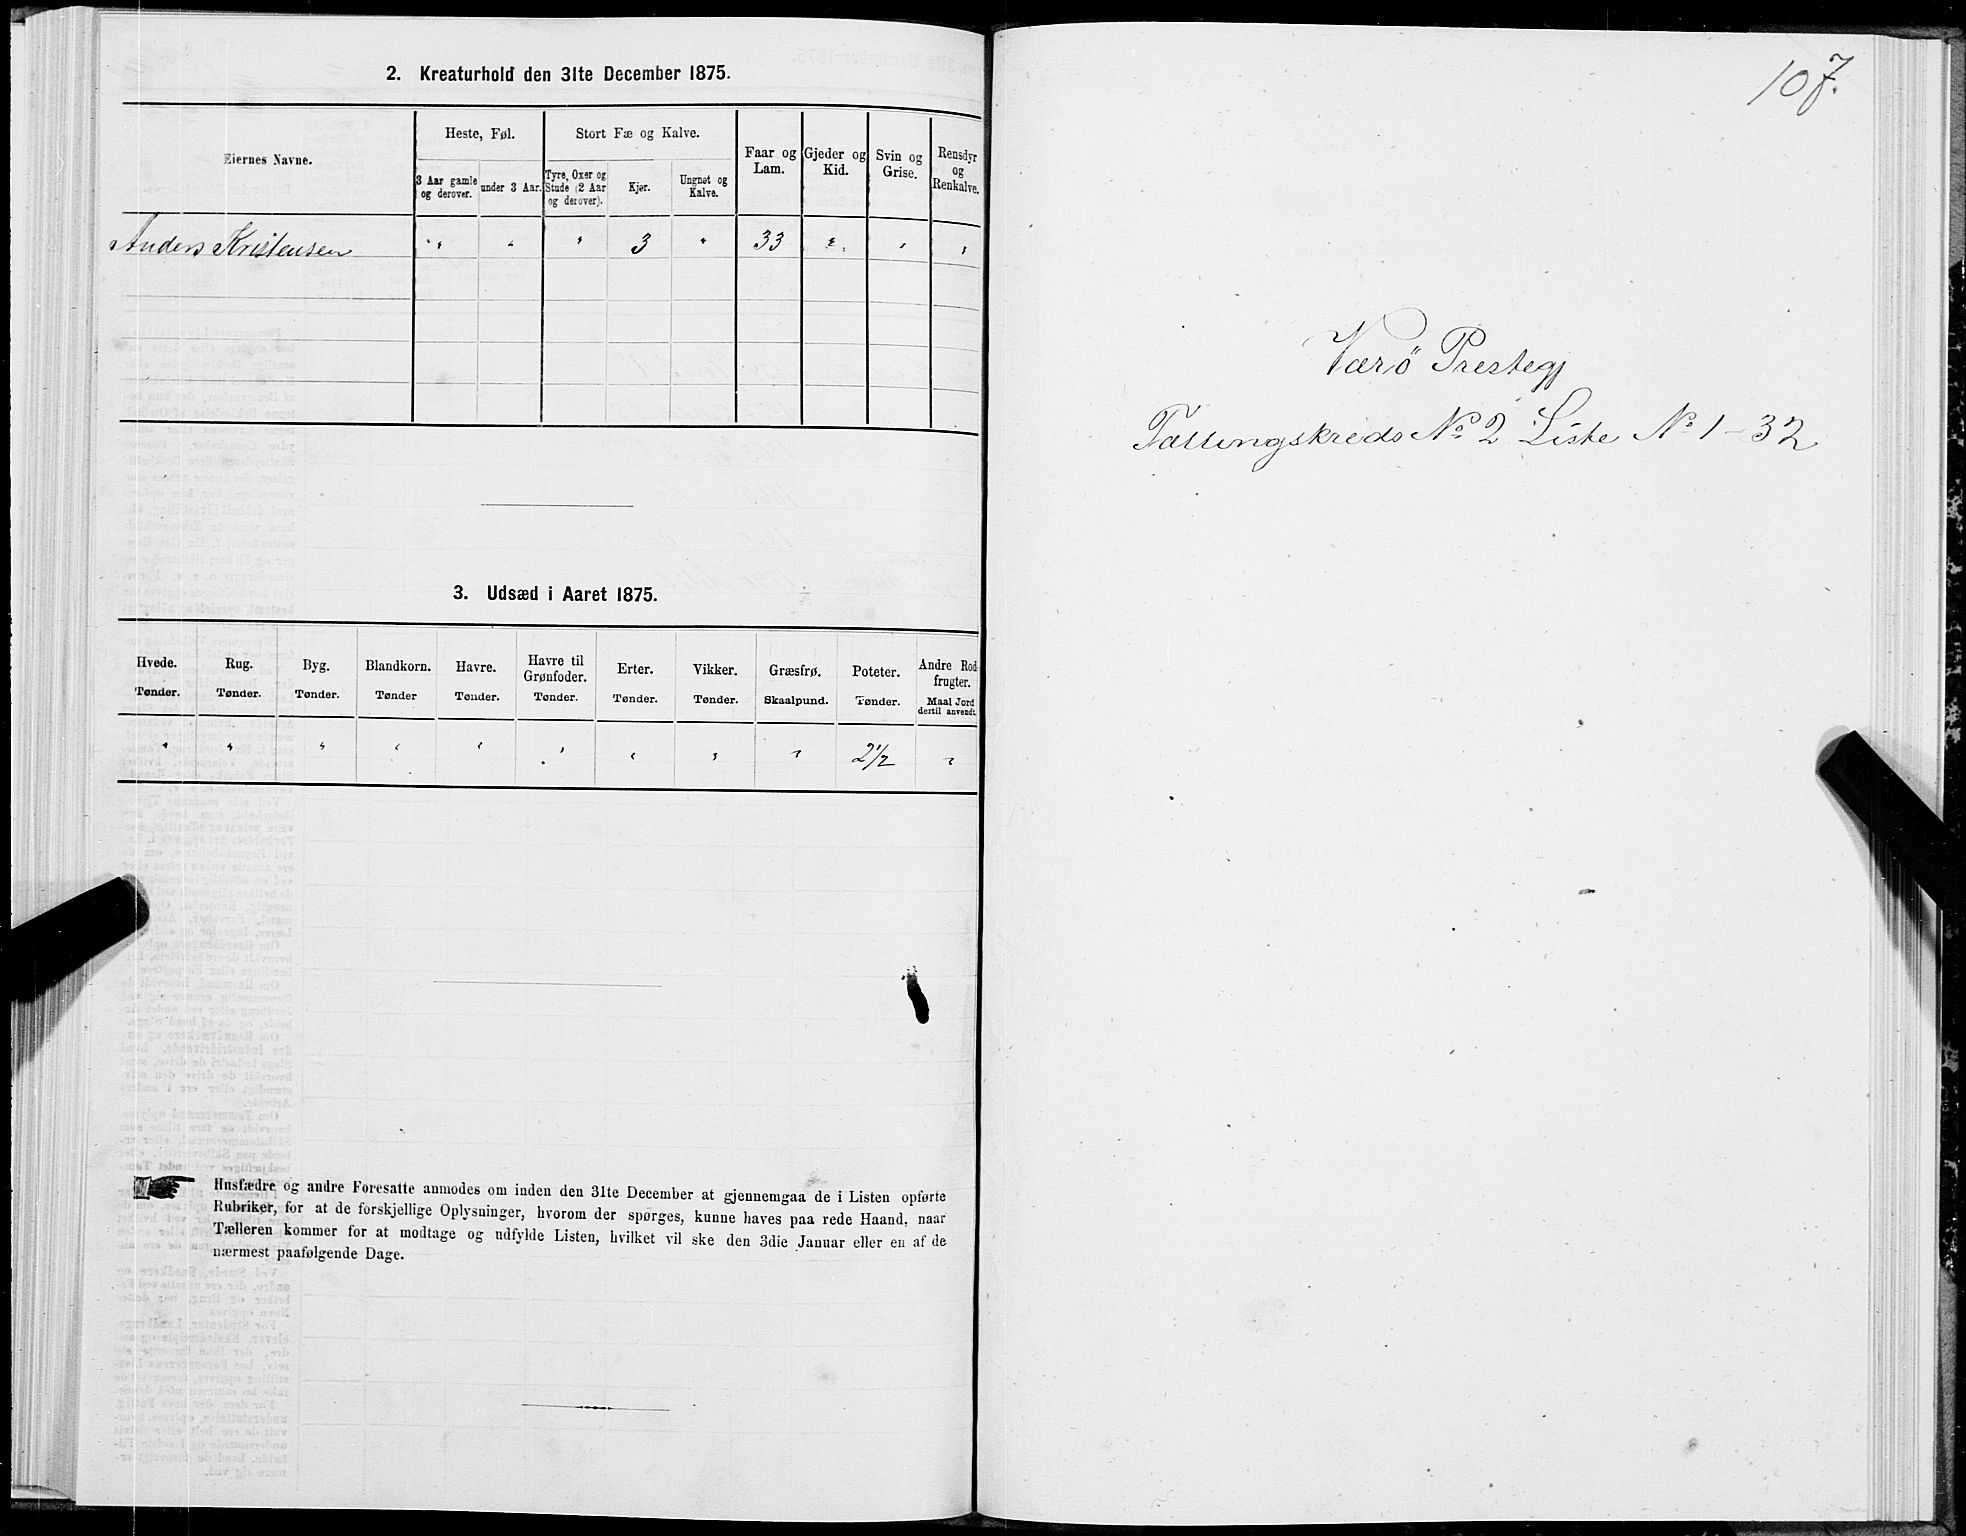 2. Kreaturhold den 31te December 1875.
Eiernes Navne.
Heste, Føl.
3 Aar gamle og derover.
under 3 Aar.
Stort Fæ og Kalve.
Tyre, Oxer og Stude (2 Aar og derover).
Kjør.
Ungnøt og Kalve.
Faar og Lam.
Gjeder og Kid.
Svin og Grise.
Rensdyr og Renkalve.
Anders Kristensen " " " 3 " 33 " " "
3. Udsæd i Aaret 1875.
Hvede. Rug. Byg. Blandkorn. Havre. Havre til Grønfoder. Erter. Vikker. Græsfrø. Poteter. Andre Rodfrugter.
Tønder. Tønder. Tønder. Tønder Tønder. Tønder. Tønder. Tønder. Skaalpund. Tønder. Maal Jord dertil anvendt.
" " " " " " " " " 2 1/2 "
Husfædre og andre Foresatte anmodes om inden den 31te December at gjennemgaa de i Listen opførte
Rubriker, for at de forskjellige Oplysninger, hvorom der spørges, kunne haves paa rede Haand, naar
Tælleren kommer for at modtage og udfylde Listen, hvilket vil ske den 3die Januar eller en af de
nærmest paafølgende Dage.
107.
Værö Prestegj
Tællingskreds No 2 Liste No 1-32